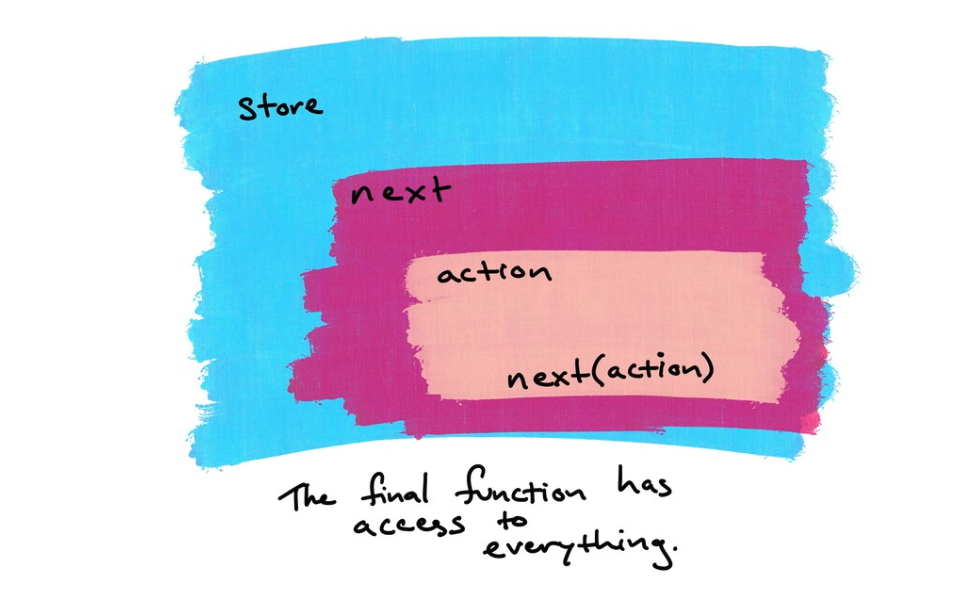 store
next
action
next(action)
The final function has
access to
everything.